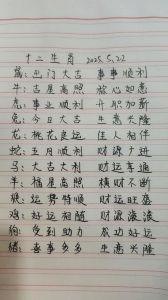 十二生肖 2025.5.22
鼠:出门大吉 事事顺利
牛:吉星高照 称心如意
虎:事业顺利 升职加薪
兔:今日大吉 生意兴隆
龙:桃花良运 佳人相伴
蛇:五月顺利 财源广进
马:大吉大利 财运亨通
羊:福星高照 横财不断
猴:运势特顺 财运旺盛
鸡:好运相随 财源滚滚
狗:受到助力 成功好运
猪:喜事多多 生意兴隆